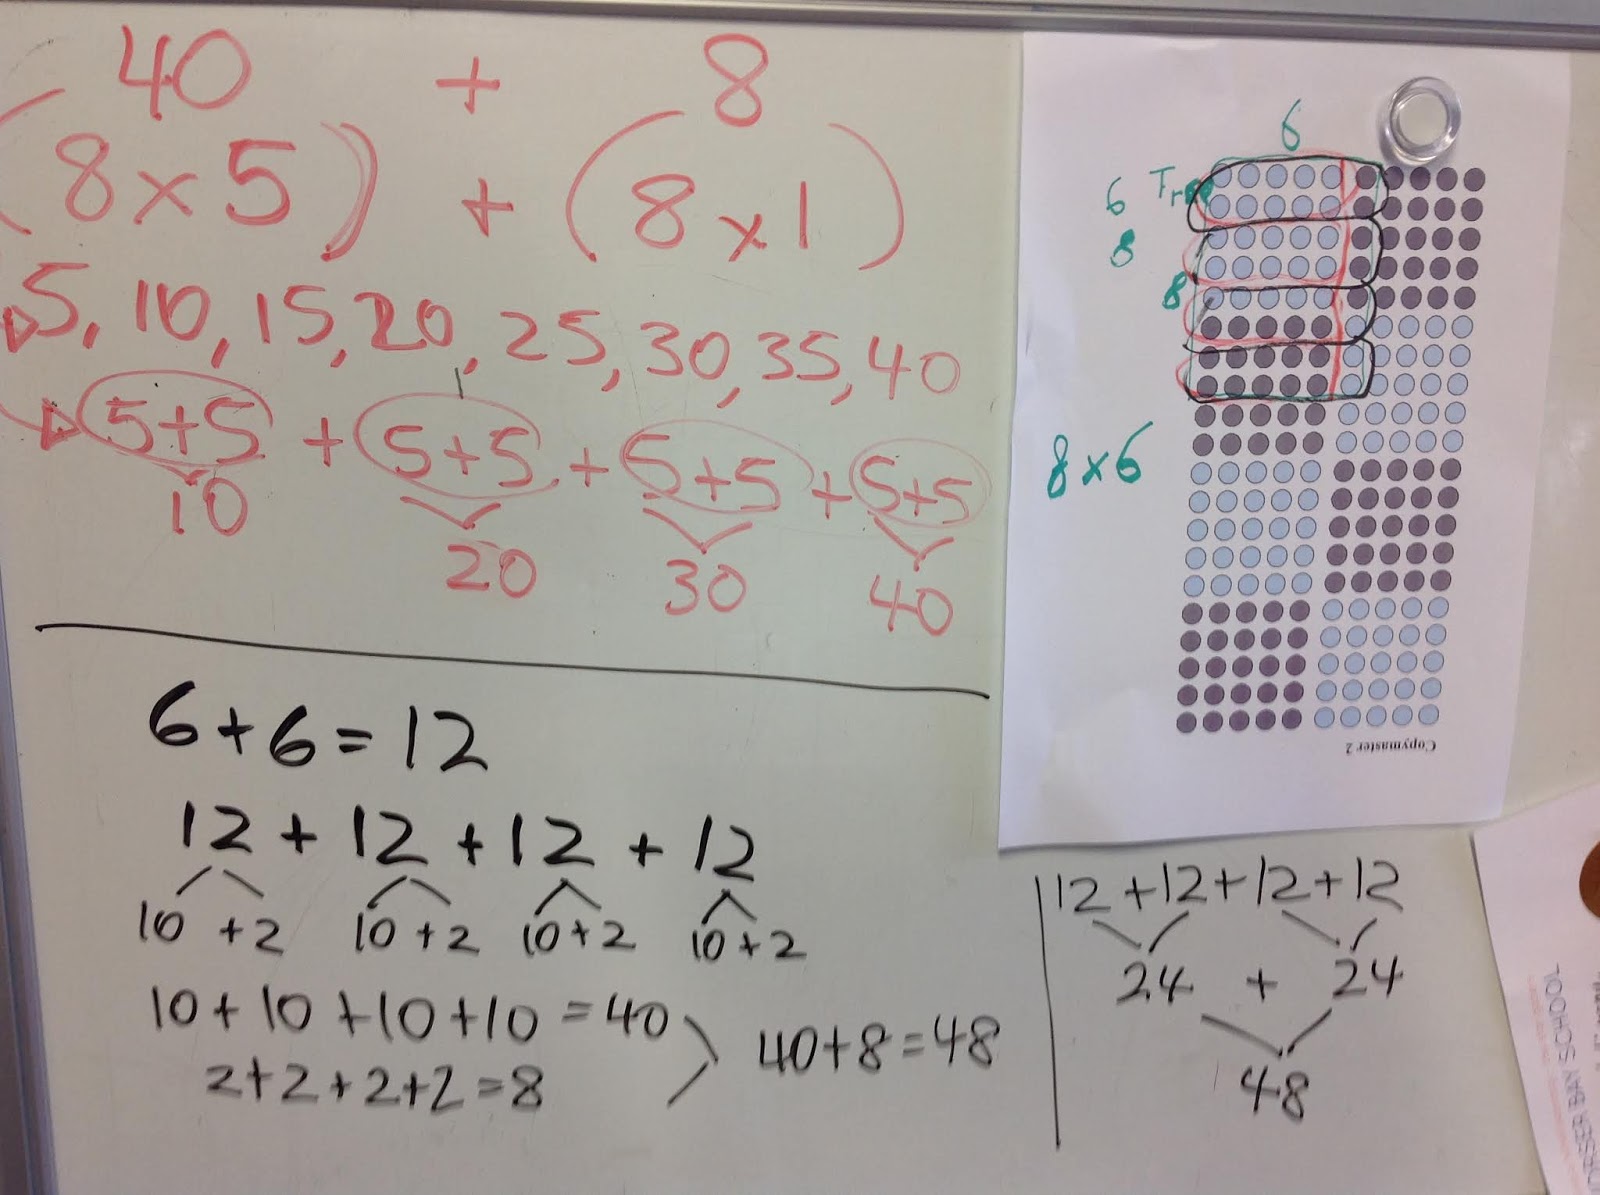 40 + 8
(8x5) + (8x1)
5, 10, 15, 20, 25, 30, 35, 40
5+5 + 5+5 + 5+5 + 5+5
10 20 30 40
6+6=12
12 + 12 + 12 + 12
10 +2 10 +2 10+2 10+2
10+10+10+10=40
2+2+2+2=8
40+8=48
6
6
8
8
8x6
Copymaster 2
12+12+12+12
24 + 24
48
SCHOOL